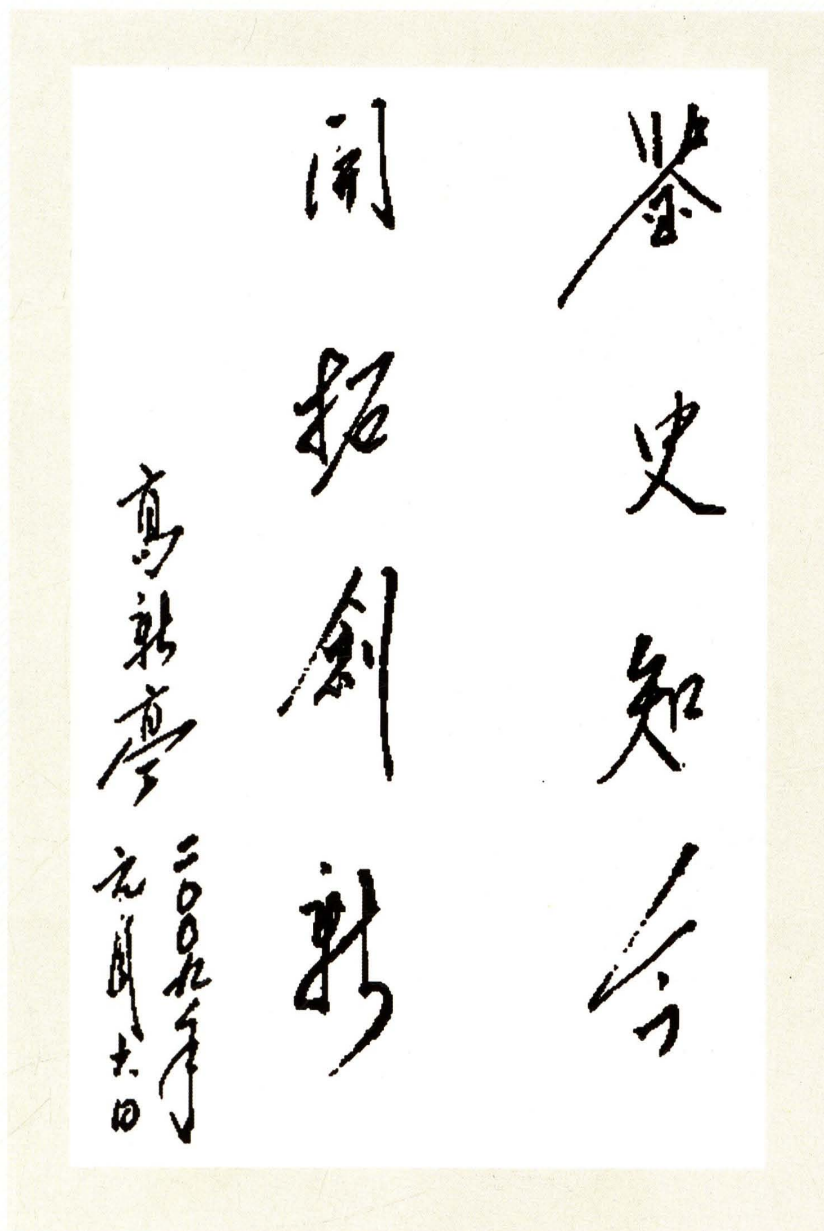 鉴史知今
開拓創新
高新亭
二〇〇九年
元月十六日